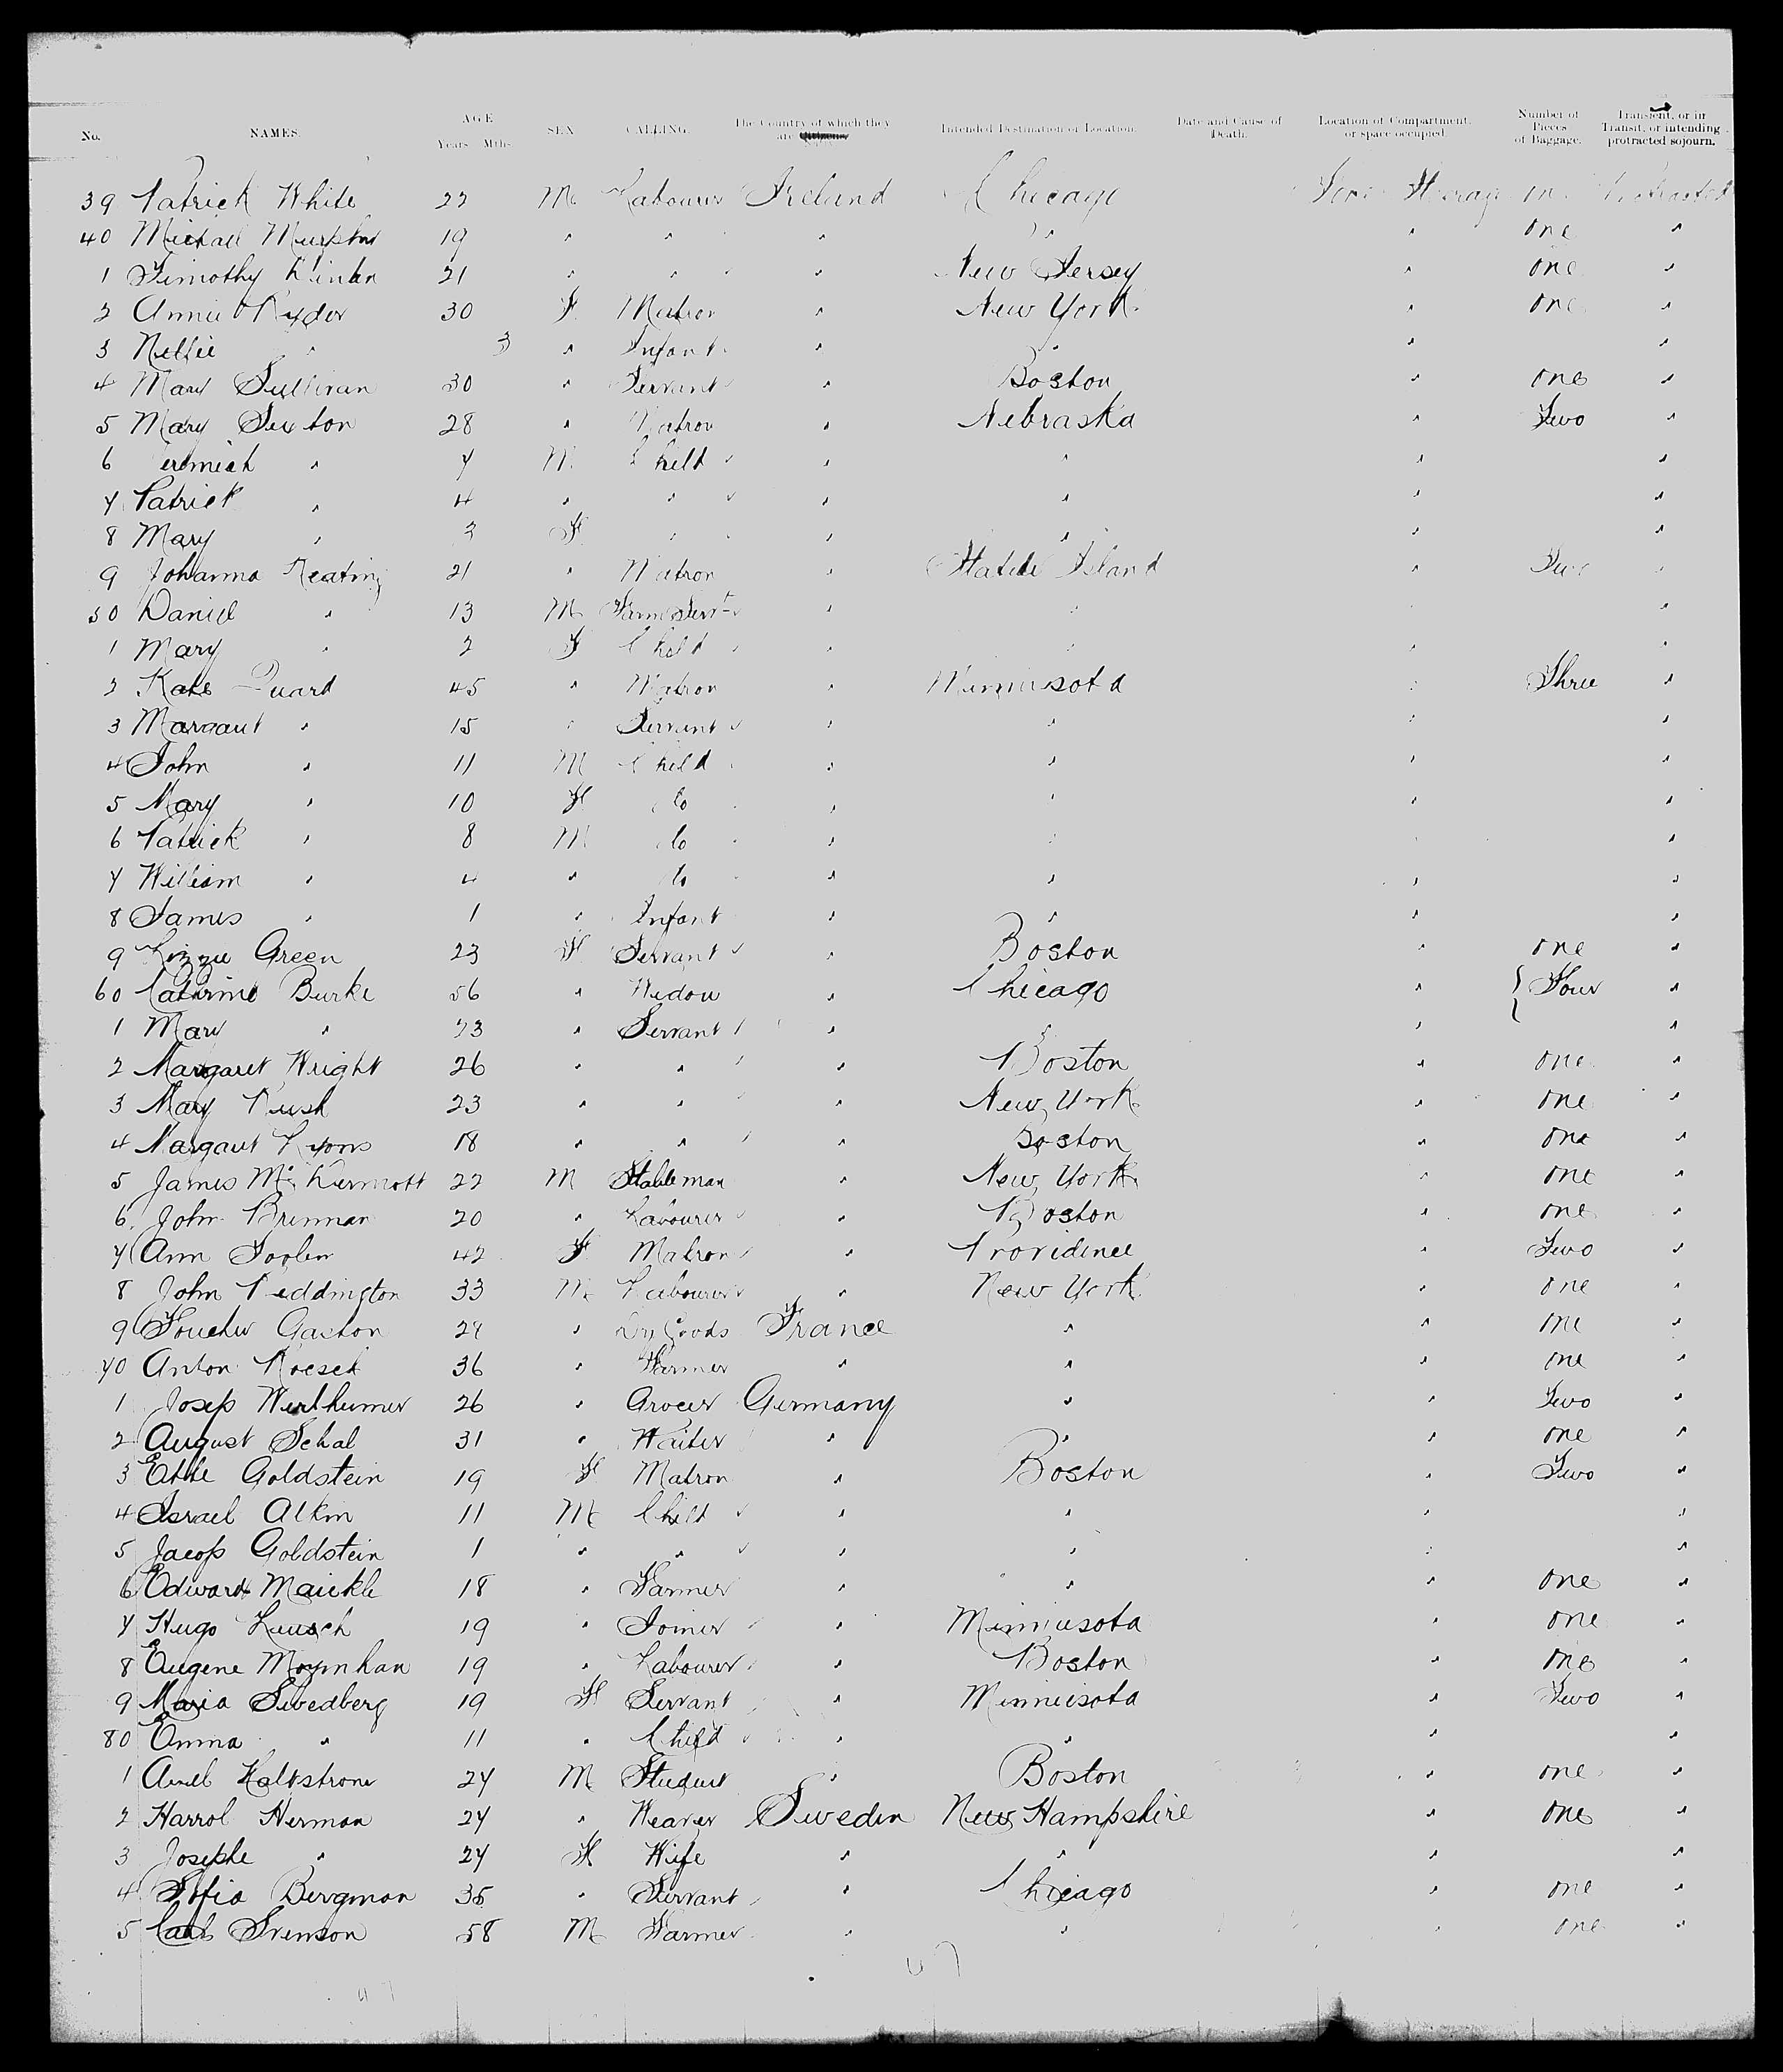 No. NAMES. AGE Years Mths. SEX CALLING. The Country of which they are Citizens Intended Destination or Location. Date and Cause of Death. Location of Compartment, or space occupied Number of Pieces of Baggage. Transient, or in Transit, or intending protracted sojourn.
39 Patrick White 22 M Labourer Ireland Chicago Steerage one Protracted
40 Michael Murphy 19 " " " " " one "
1 Timothy 21 " " " New Jersey " one "
2 Annie Ryder 30 F Matron " New York " one "
3 Nellie " 3 " Infant " " " "
4 Mary Sullivan 30 " Servant " Boston " one "
5 Mary Sexton 28 " Matron " Nebraska " Two "
6 Jeremiah " 7 M Child " " " "
7 Patrick " 4 " " " " " "
8 Mary " 3 F " " " " "
9 Johanna Keating 21 " Matron " Staten Island " Two "
50 Daniel " 13 M Farm Servt " " " "
1 Mary " 2 F Child " " " "
2 Kate Quard 45 " Matron " Minnisota " Three "
3 Margaret " 15 " Servant " " " "
4 John " 11 M Child " " " "
5 Mary " 10 F do " " " "
6 Patrick " 8 M do " " " "
7 William " 4 " do " " " "
8 James " 1 " Infant " " " "
9 Lizzie Green 23 F Servant " Boston " one "
60 Catherine Burke 56 " Widow " Chicago " Four "
1 Mary " 23 " Servant " " " "
2 Margaret Wright 26 " " " Boston " one "
3 Mary Rush 23 " " " New York " one "
4 Margaret Lyons 18 " " " Boston " one "
5 James McDermott 22 M Stableman " New York " one "
6 John Brennan 20 " Labourer " Boston " one "
7 Ann Toolen 42 F Matron " Providence " Two "
8 John Reddington 33 M Labourer " New York " one "
9 Gaston " Dry Goods France " " one "
70 Anton Roesch 36 " Farmer " " " one "
1 Josep Wertheimer 26 " Grocer Germany " " Two "
2 August Schal 31 " Waiter " " " one "
3 Ethe Goldstein 19 F Matron " Boston " Two "
4 Israel Alkin 11 M Child " " " "
5 Jacop Goldstein 1 " " " " " "
6 Edward Maickle 18 " Farmer " " " one "
7 Hugo 19 " Joiner " Minniesota " one "
8 Eugene Moynihan 19 " Labourer " Boston " one "
9 Maria Swedberg 19 F Servant " Minniesota " Two "
80 Emma " 11 " Child " " " "
1 Axel 27 M Student " Boston " one "
2 Harrol Herman 27 " Weaver Sweden New Hampshire " one "
3 Josephe " 27 F Wife " " " "
4 Sofia Bergman 35 " Servant " Chicago " one "
5 Carl Svenson 58 M Farmer " " " one "